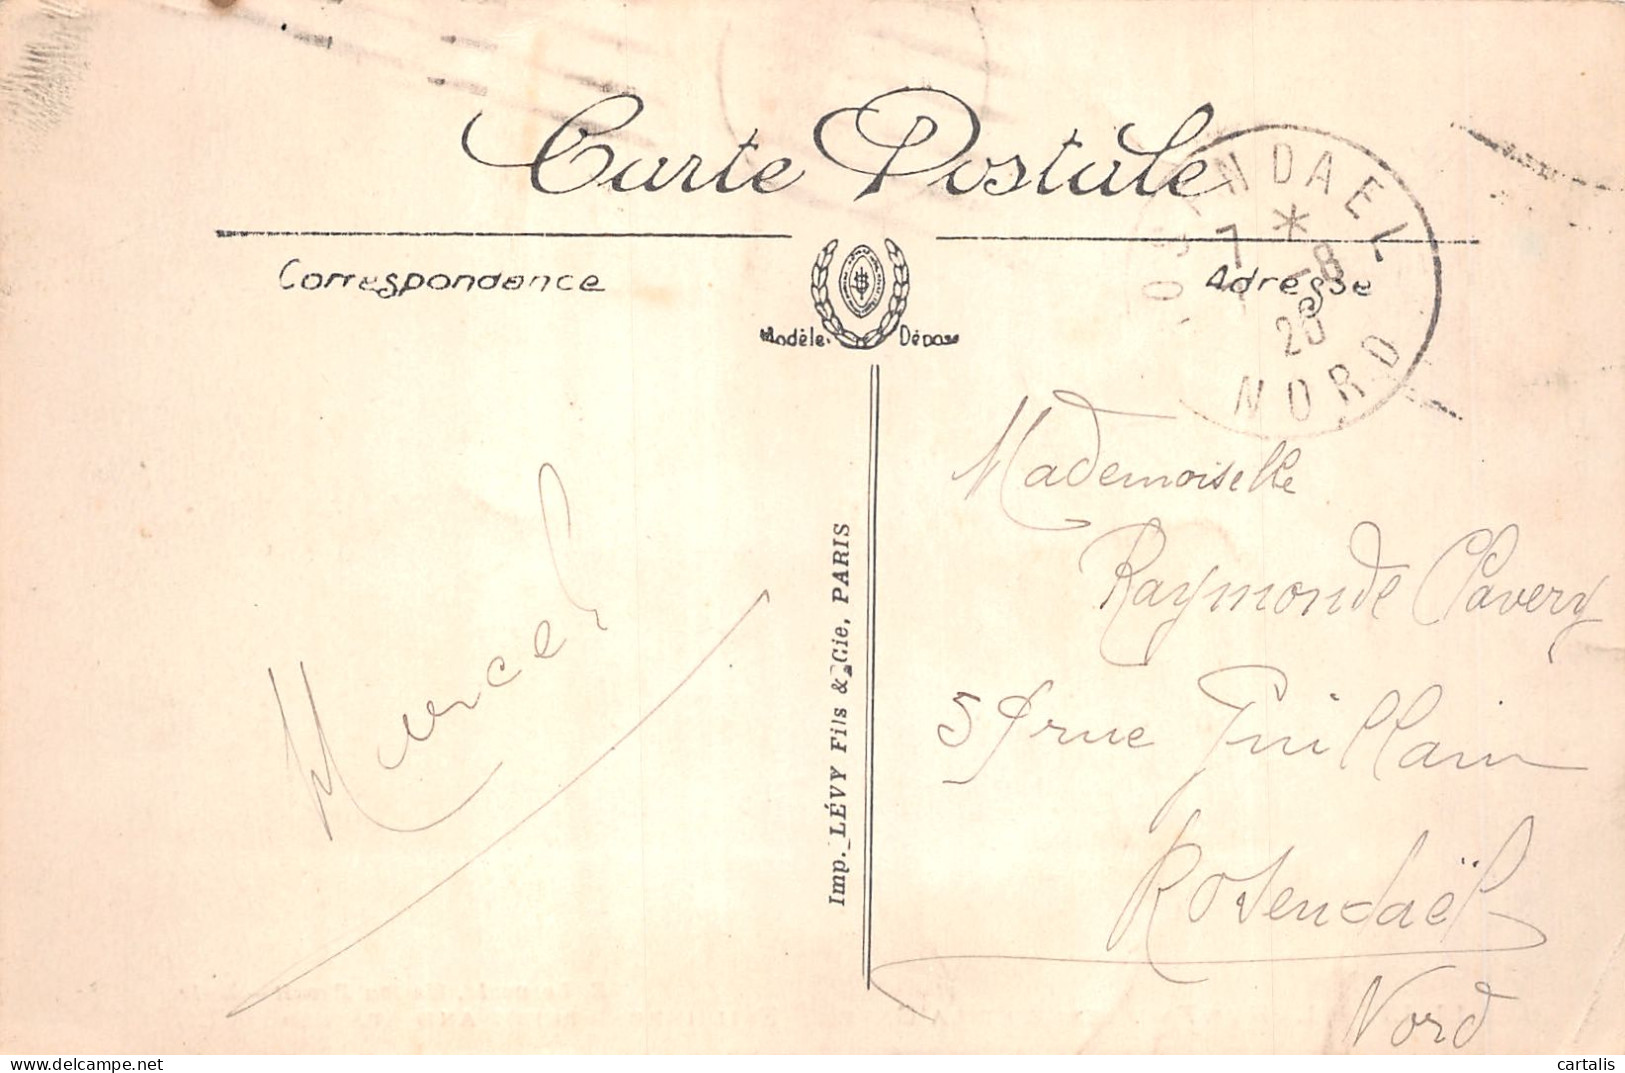 Carte Postale
Correspondance
Adresse
Modèle Déposé
NDAEL
7 *
7 -8
20
NORD
Mademoiselle
Raymonde Clavery
59 rue Guillain
Rosendaël
Nord
Marcel
Imp. LÉVY Fils & Cie, PARIS
cartalis